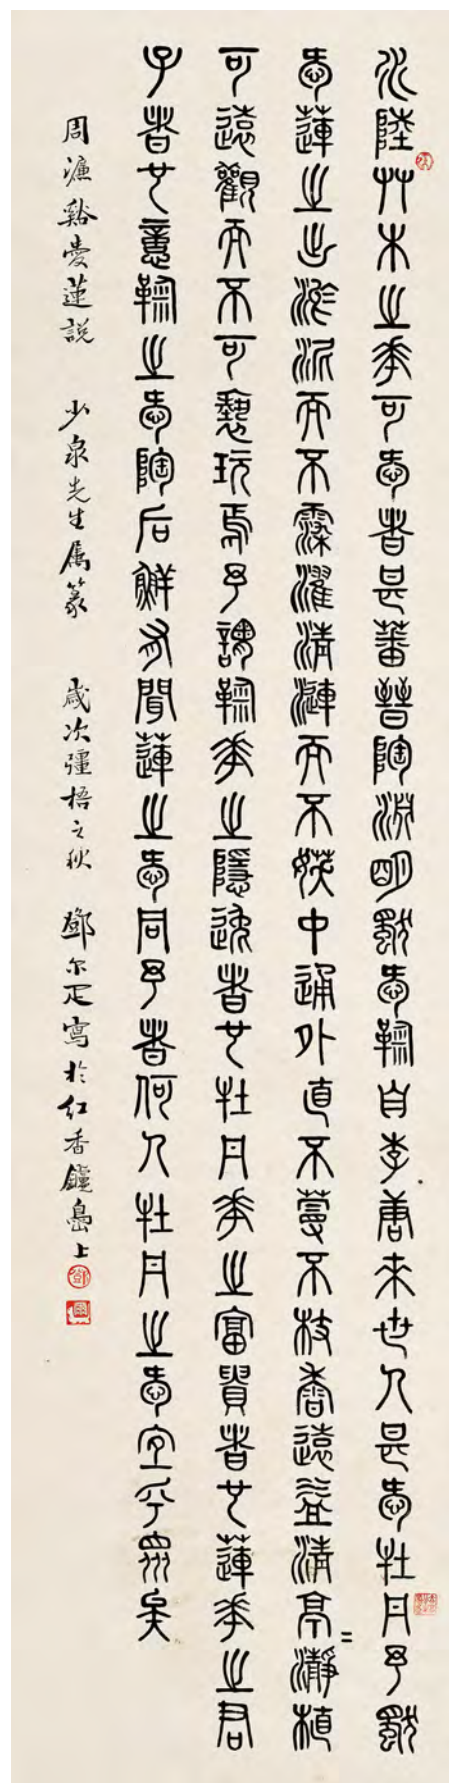 水陸艸木之華可㤅者甚蕃晉陶淵明獨㤅鞠自李唐來世人甚㤅牡丹予獨
㤅蓮之出淤泥而不染濯清漣而不妖中通外直不蔓不枝香遠益清亭〻瀞植
可遠觀而不可褻玩焉予謂鞠華之隱逸者也牡丹華之富貴者也蓮華之君
子者也意鞠之㤅陶后鮮有聞蓮之㤅同予者何人牡丹之㤅宜乎眾矣
周濂谿愛蓮說 少泉先生屬篆 歲次彊梧之秋 鄧尔疋寫於紅香鑪島上